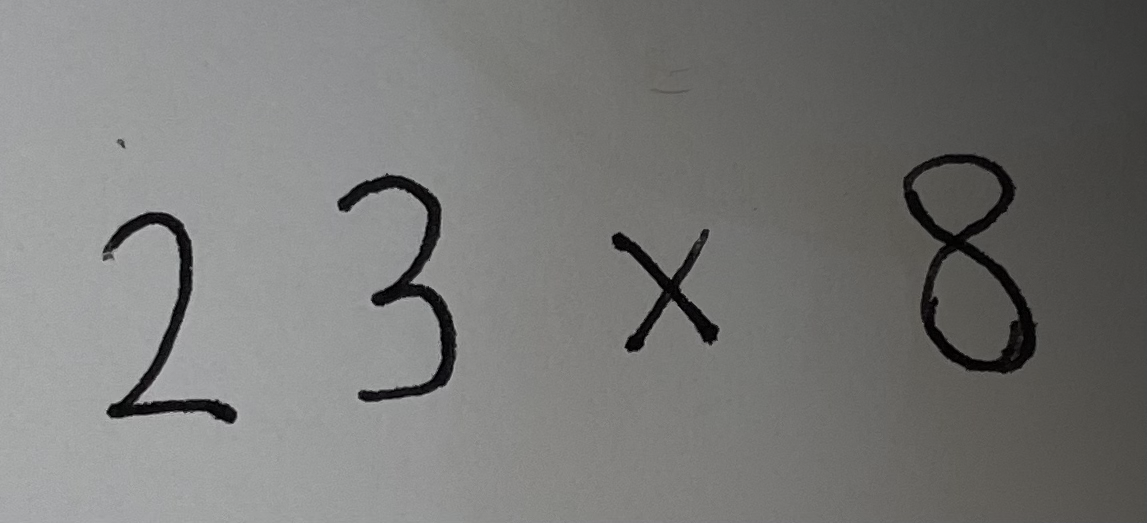 23 × 8